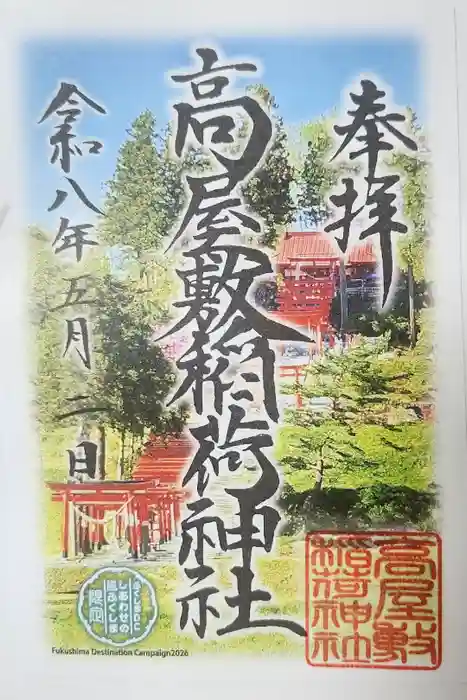 奉拝
高屋敷稲荷神社
令和八年五月二日
高屋敷
稲荷神社
ふくしまDC
しあわせの
風ふくしま
限定
Fukushima Destination Campaign2026